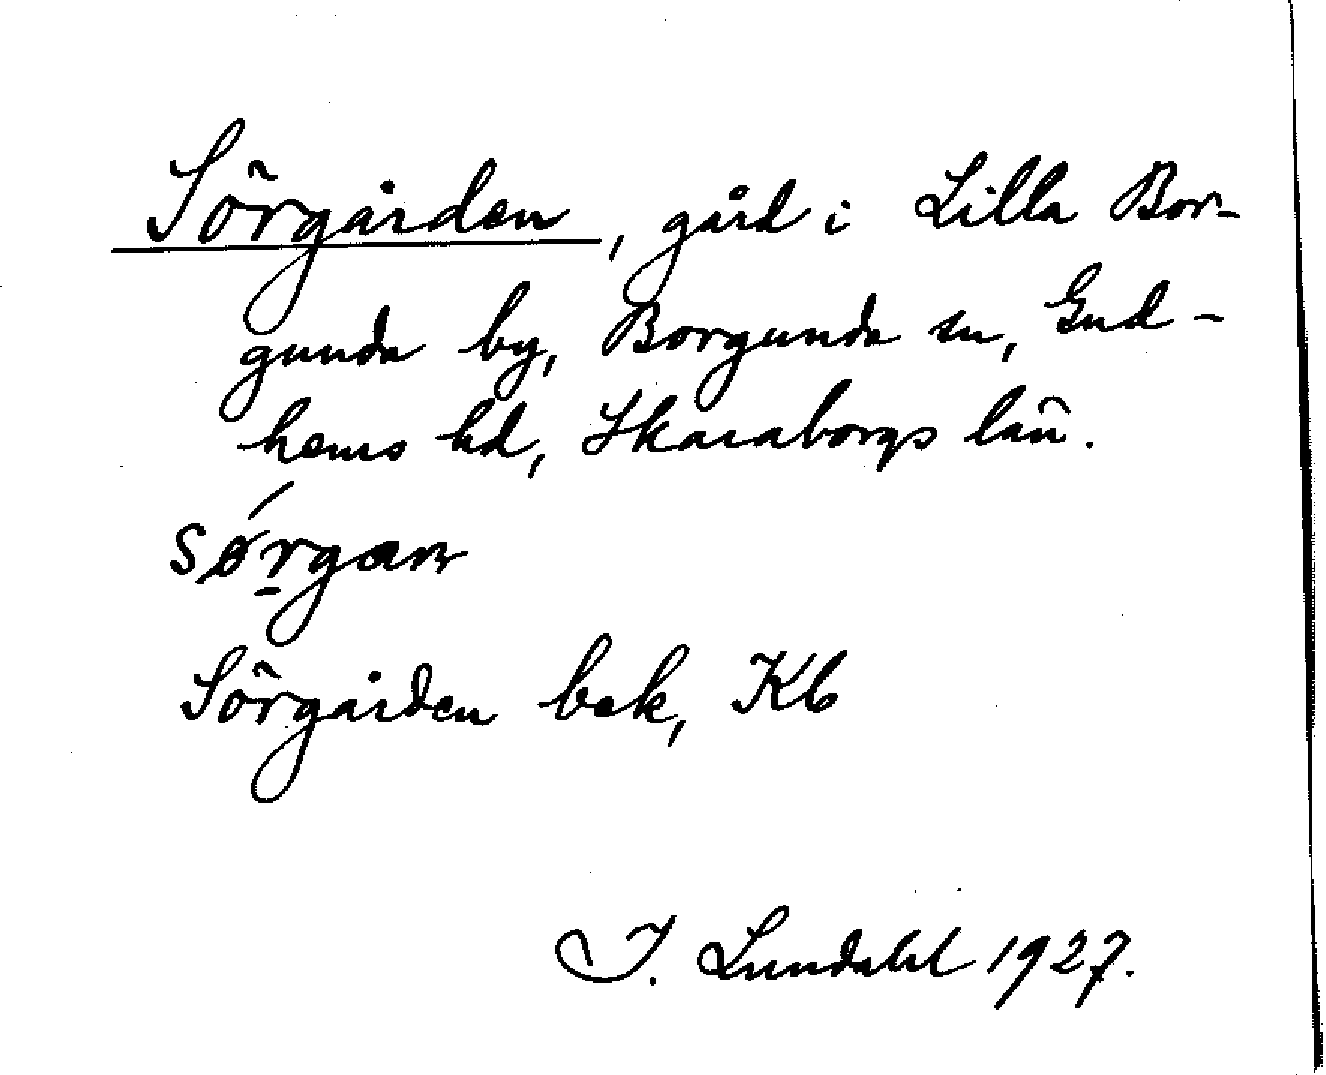 Sörgården, gård i Lilla Bor-
gunda by, Borgunda sn, Gud-
hems hd, Skaraborgs län.
Sörgården bek, Kb
I. Lundahl 1927.